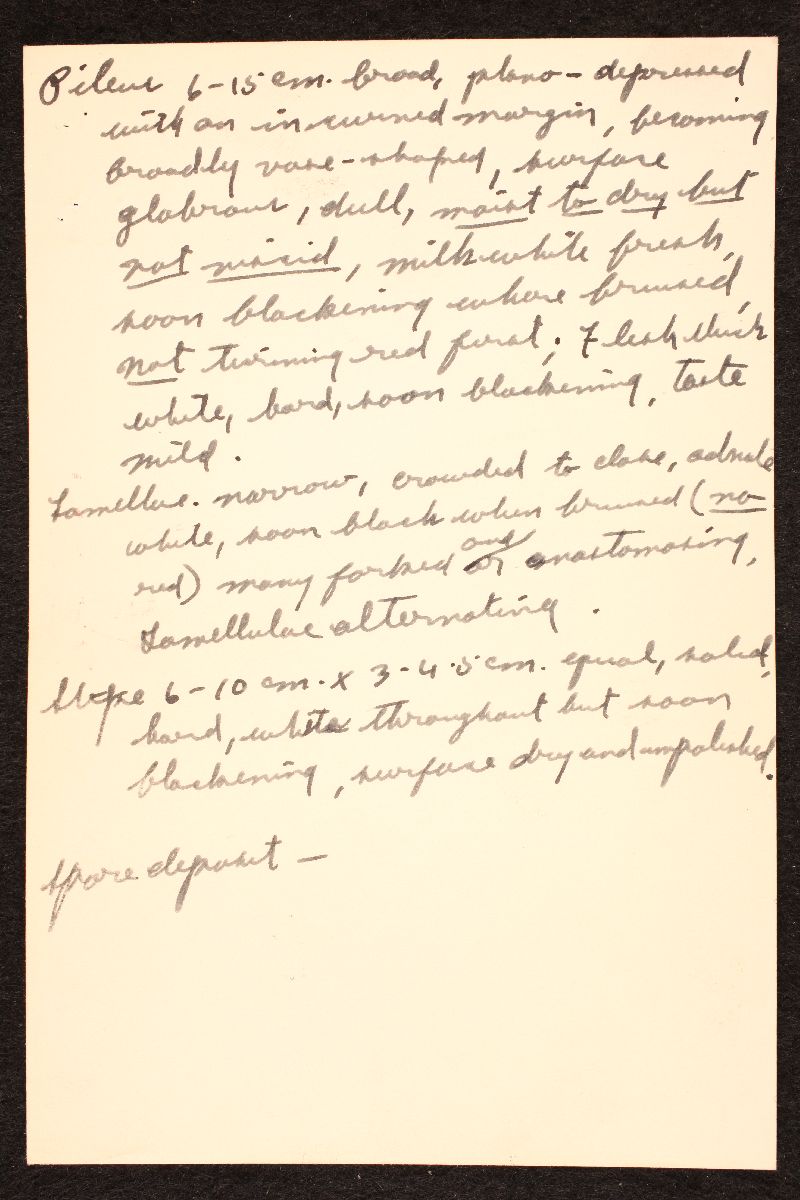 Pileus 6-15 cm. broad, plano-depressed
with an incurved margin, becoming
broadly vase-shaped, surface
glabrous, dull, moist to dry but
not viscid, milk white fresh,
soon blackening where bruised,
not turning red first; Flesh thick
white, hard, soon blackening, taste
mild.
Lamellae. narrow, crowded to close, adnate
white, soon black when bruised (no
red) many forked and anastomosing,
Lamellulae alternating.
Stipe 6-10 cm. x 3-4.5 cm. equal, solid,
hard, white throughout but soon
blackening, surface dry and unpolished.
Spore deposit —